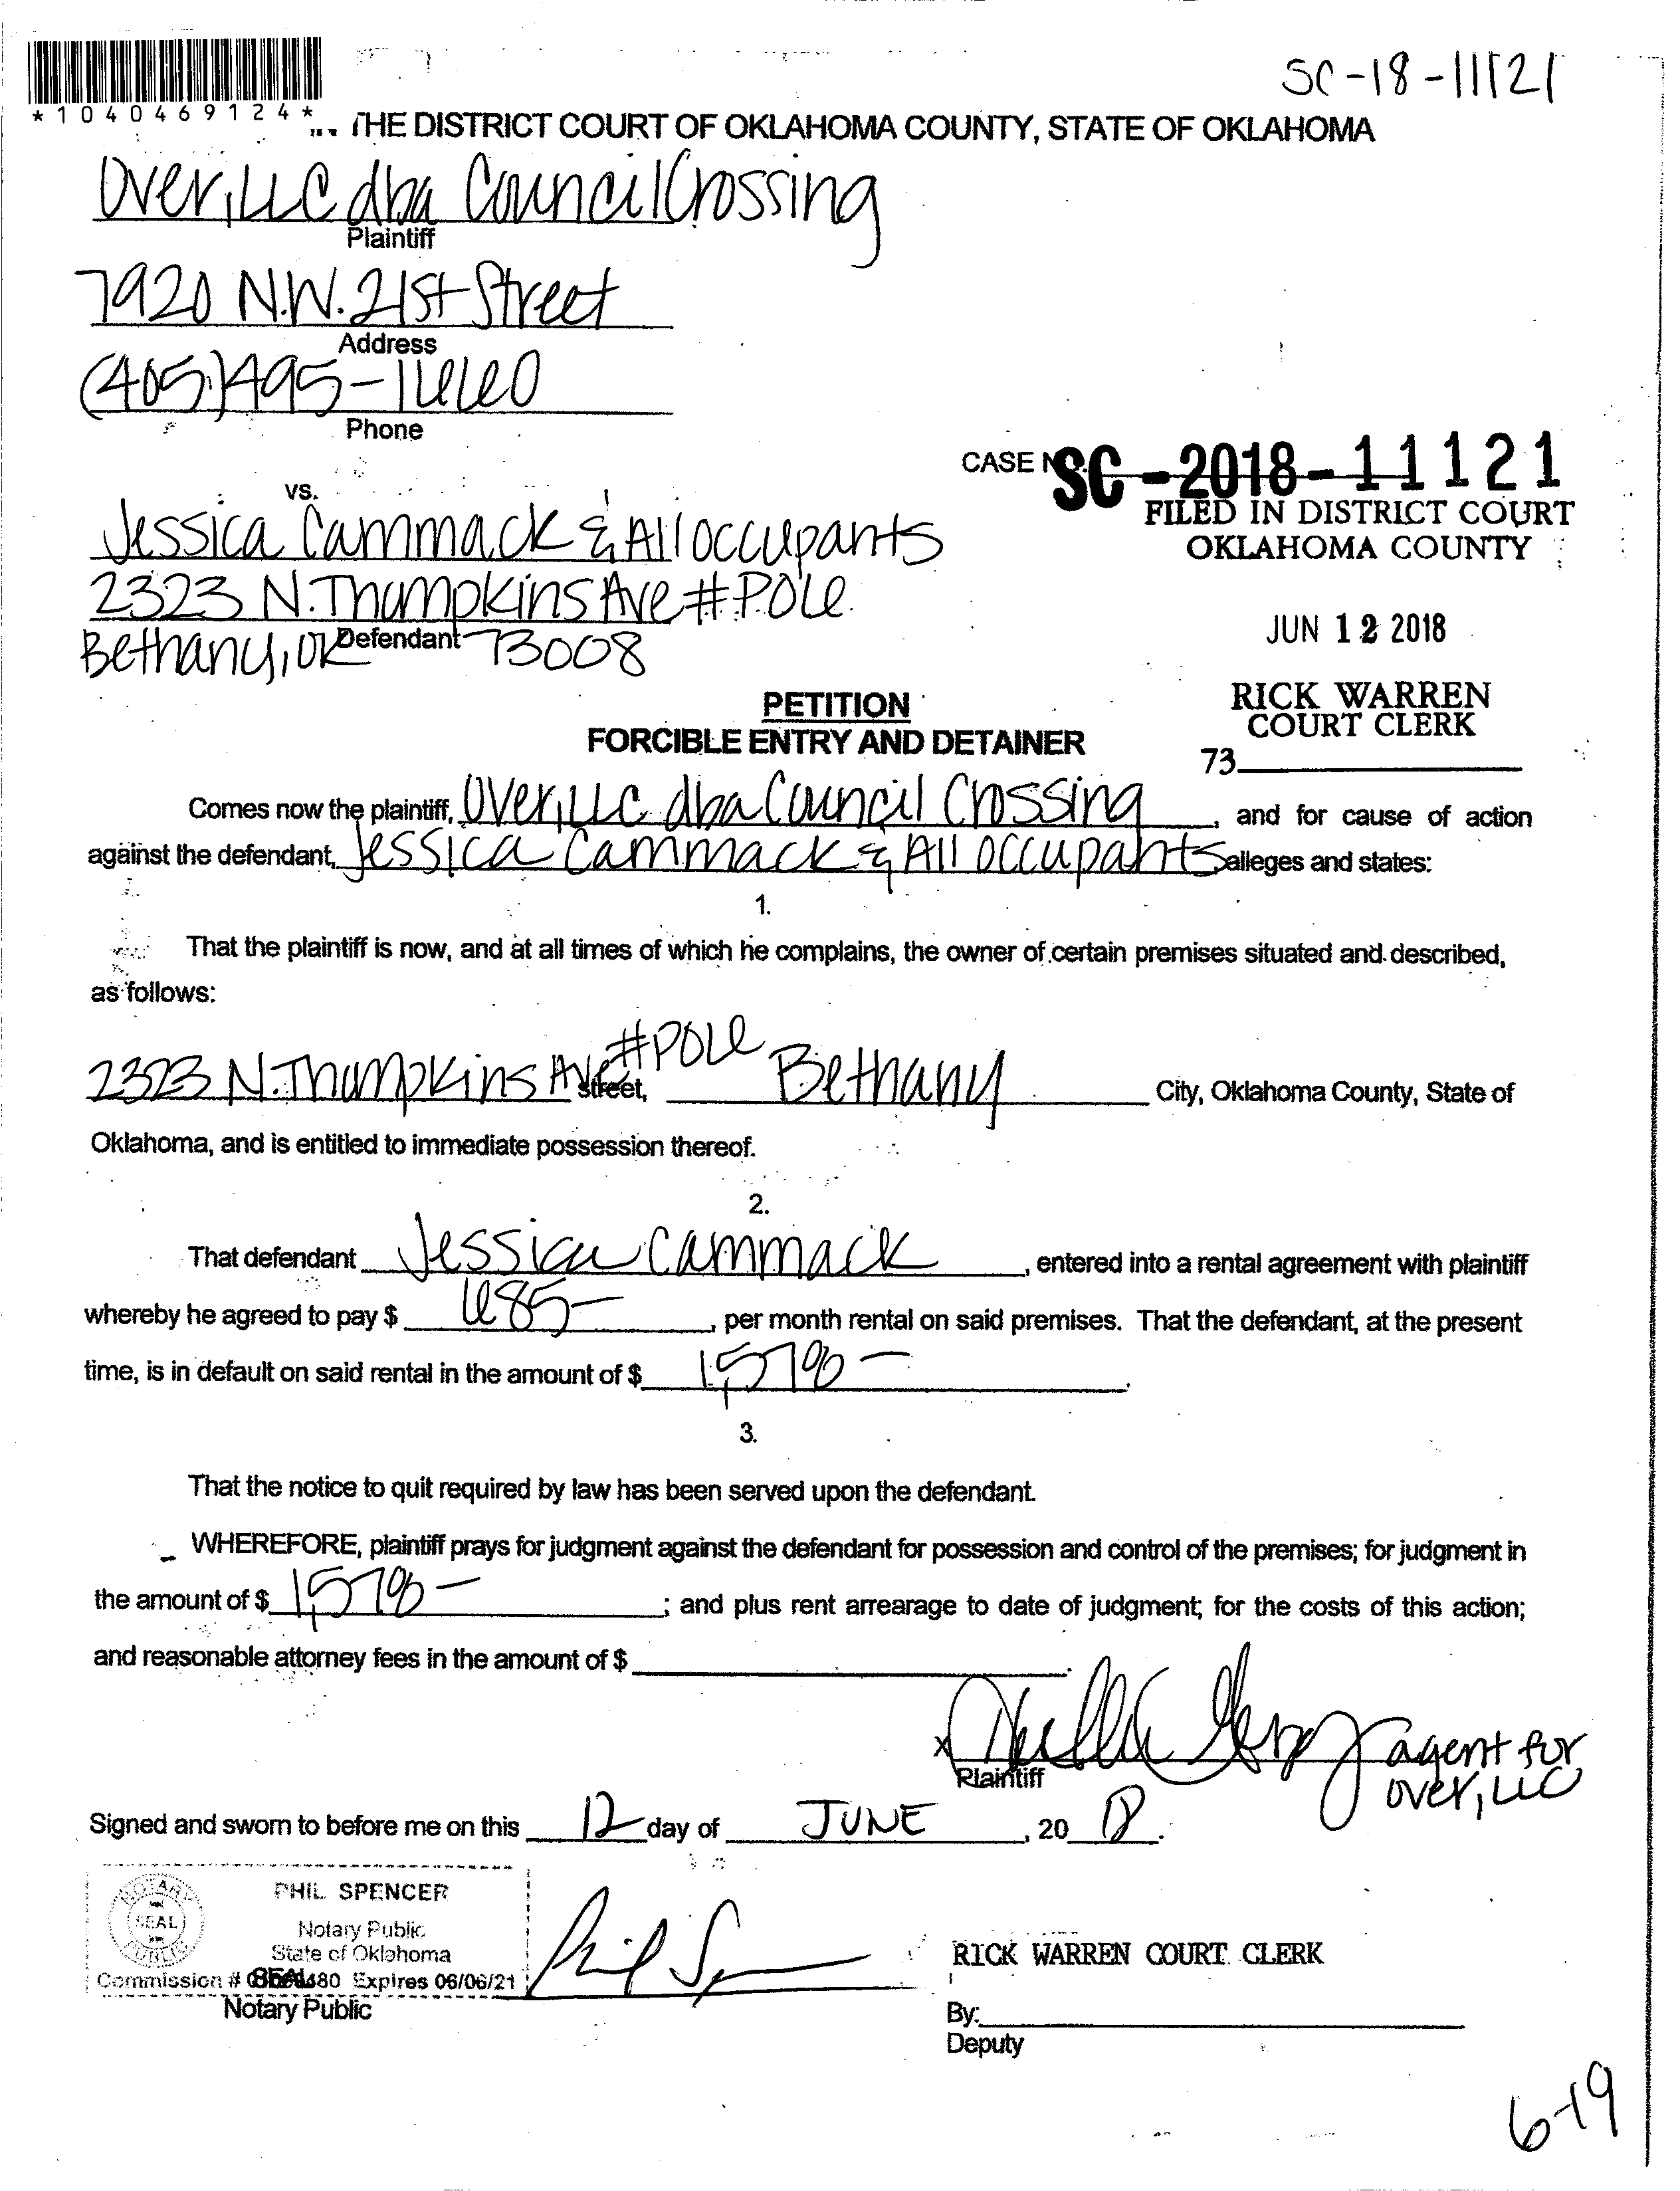 SC-18-11121
*1040469124*
THE DISTRICT COURT OF OKLAHOMA COUNTY, STATE OF OKLAHOMA
Over, LLC dba Council Crossing
Plaintiff
7920 N.W. 21st Street
Address
(405)495-1660
Phone
CASE
SC-2018-11121
FILED IN DISTRICT COURT
OKLAHOMA COUNTY
vs.
Jessica Cammack & All occupants
2323 N. Thompkins Ave #P016
Defendant
Bethany, OK 73008
JUN 12 2018
RICK WARREN
COURT CLERK
73
PETITION
FORCIBLE ENTRY AND DETAINER
Comes now the plaintiff, Over, LLC dba Council Crossing, and for cause of action
against the defendant, Jessica Cammack & All occupants alleges and states:
1.
That the plaintiff is now, and at all times of which he complains, the owner of certain premises situated and described,
as follows:
2323 N. Thompkins Ave #P016 street, Bethany City, Oklahoma County, State of
Oklahoma, and is entitled to immediate possession thereof.
2.
That defendant Jessica Cammack, entered into a rental agreement with plaintiff
whereby he agreed to pay $ 685-, per month rental on said premises. That the defendant, at the present
time, is in default on said rental in the amount of $
3.
That the notice to quit required by law has been served upon the defendant.
WHEREFORE, plaintiff prays for judgment against the defendant for possession and control of the premises; for judgment in
the amount of $ ; and plus rent arrearage to date of judgment; for the costs of this action;
and reasonable attorney fees in the amount of $
x agent for
Over, LLC
Plaintiff
Signed and sworn to before me on this 12 day of JUNE, 20 18.
NOTARY PUBLIC SEAL
PHIL SPENCER
Notary Public
State of Oklahoma
Commission # Expires 06/06/21
SEAL
Notary Public
RICK WARREN COURT CLERK
By:
Deputy
6-19